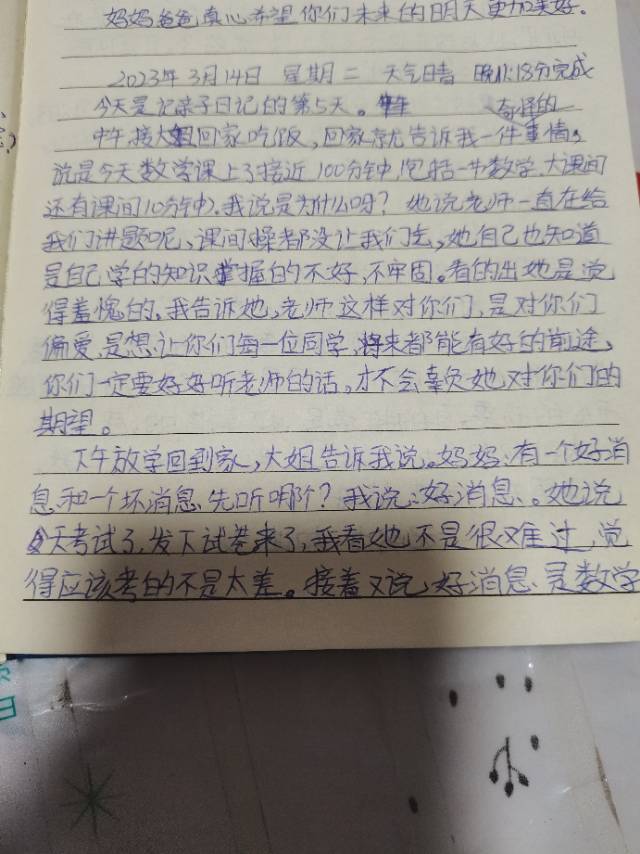 妈妈爸爸真心希望你们未来的明天更加美好。
2023年3月14日 星期二 天气晴 晚8:18分完成
今天是记亲子日记的第5天。 奇怪的
中午接大姐回家吃饭,回家就告诉我一件事情。
说是今天数学课上了接近100分钟,包括一节数学、大课间
还有课间10分钟)。我说是为什么呀?她说老师一直在给
我们讲题呢,课间操都没让我们去,她自己也知道
是自己学的知识掌握的不好,不牢固。看的出她是觉
得羞愧的。我告诉她,老师这样对你们,是对你们
偏爱,是想让你们每一位同学,将来都能有好的前途,
你们一定要好好听老师的话,才不会辜负她对你们的
期望。
下午放学回到家,大姐告诉我说。妈妈:有一个好消
息和一个坏消息,先听哪个?我说:好消息。她说
天考试了,发下试卷来了,我看她不是很难过,觉
得应该考的不是太差。接着又说:好消息、是数学